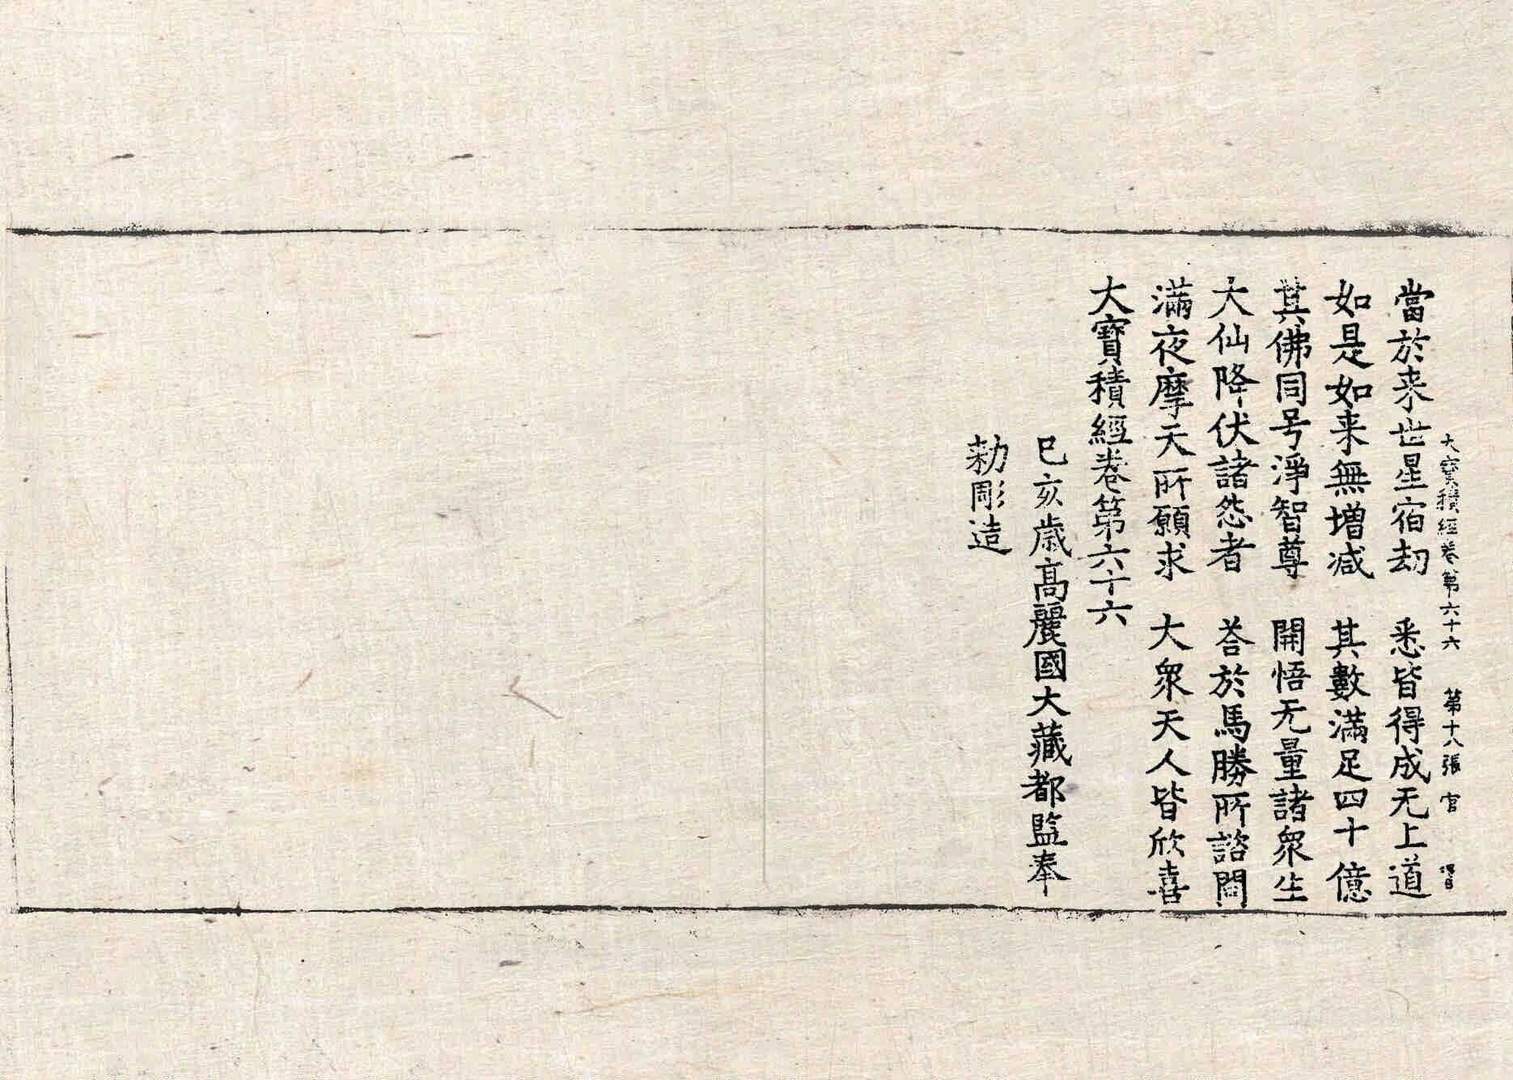 大寶積經卷第六十六　第十八張　官
當於来世星宿劫　悉皆得成无上道
如是如来無增減　其數滿足四十億
其佛同号淨智尊　開悟无量諸衆生
大仙降伏諸怨者　荅於馬勝所諮問
滿夜摩天所願求　大衆天人皆欣喜
大寶積經卷第六十六
己亥歲高麗國大藏都監奉
勑彫造